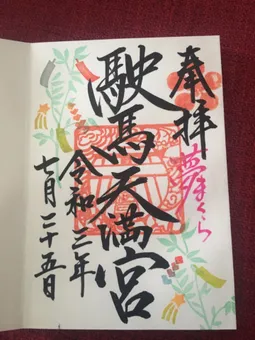 奉拝
夢さくら
駛馬天満宮
令和三年
七月二十五日